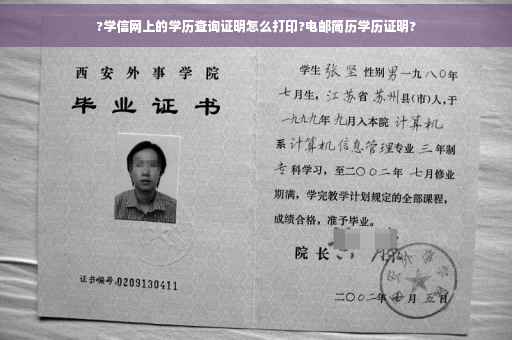 ?学信网上的学历查询证明怎么打印?电邮简历学历证明?
西安外事学院
毕业证书
证书编号:0209130411
学生 张坚 性别男一九八〇年
七月生，江苏省苏州县(市)人，于
一九九九年九月入本院 计算机
系 计算机信息管理专业 三 年制
专科学习，至二〇〇二年 七月修业
期满，学完教学计划规定的全部课程，
成绩合格，准予毕业。
院长
二〇〇二年 月 五日